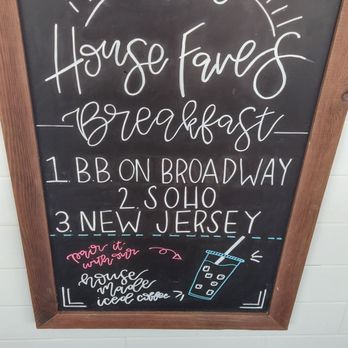 House Faves
Breakfast
1. B.B. ON BROADWAY
2. SOHO
3. NEW JERSEY
pair it
with our
house
made
iced coffee